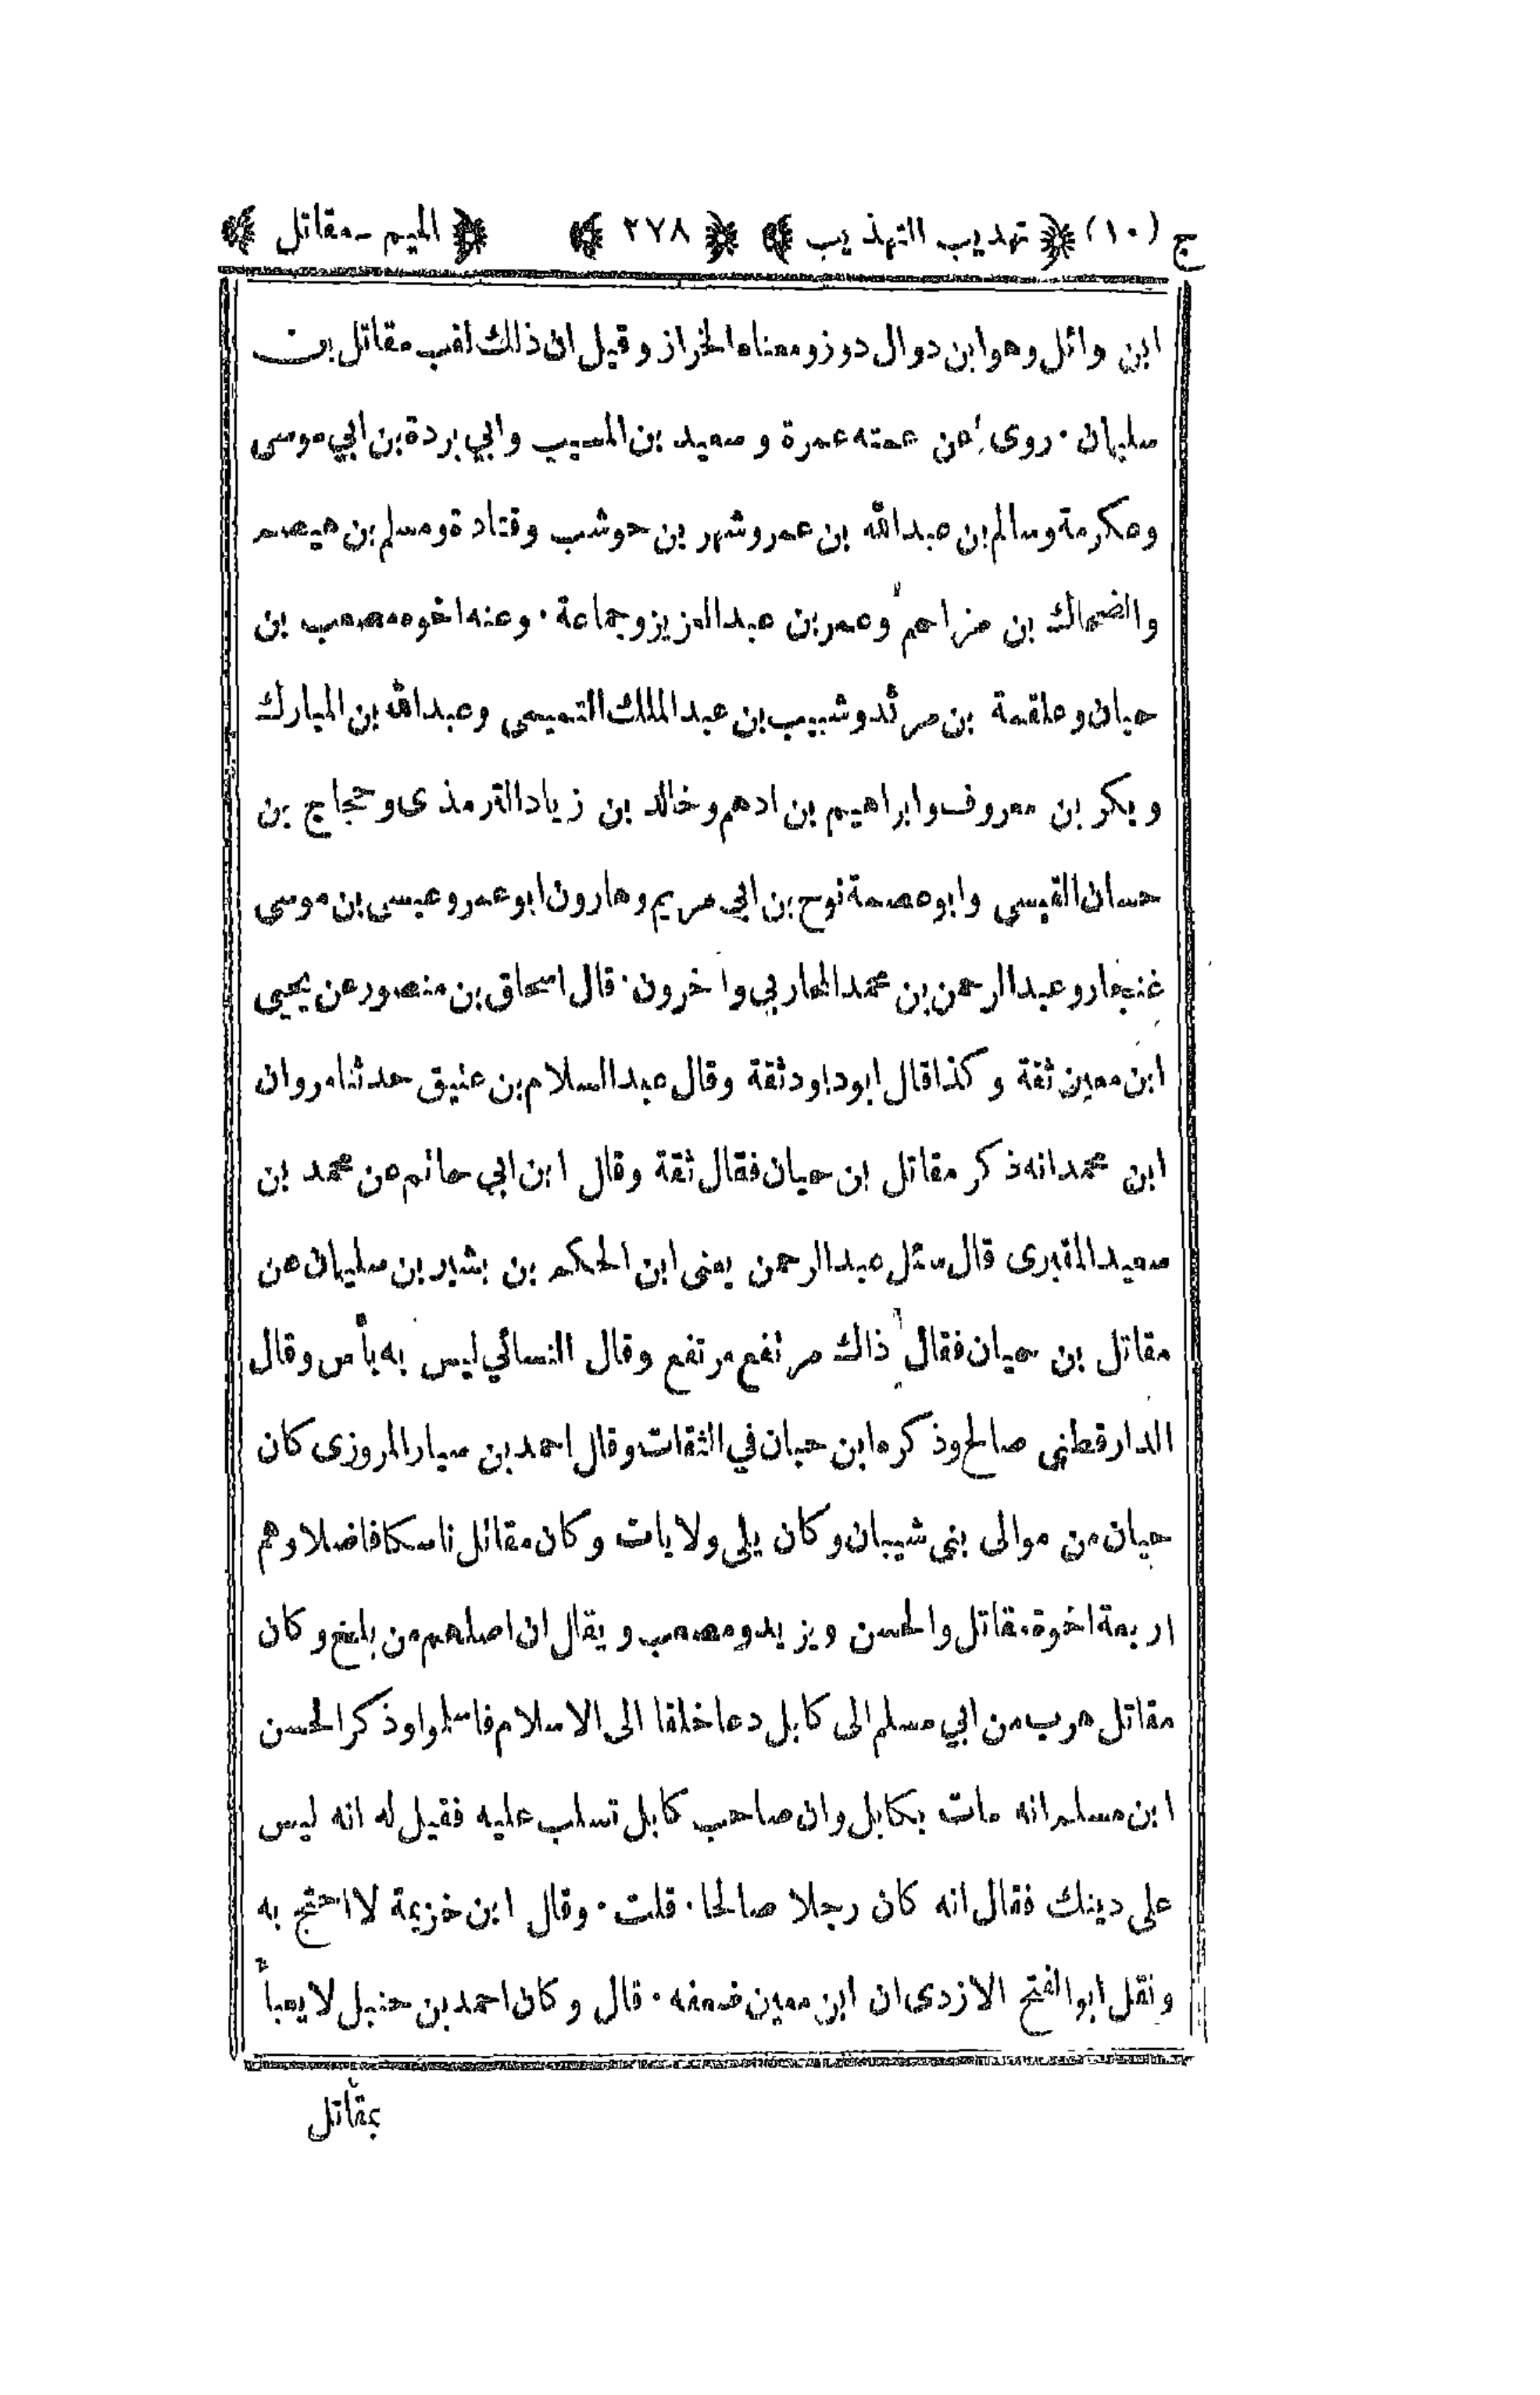 ج (١٠) ﴿ تهذيب التهذيب ﴾ ﴿ ٢٧٨ ﴾ ﴿ الميم - مقاتل ﴾
ابن وائل وهو ابن دوال دوز ومعناه الخراز وقيل ان ذلك لقب مقاتل بن
سليمان · روى عن عمته عمرة و سعيد بن المسيب وابي بردة بن ابي موسى
وعكرمة وسالم بن عبدالله بن عمر وشهر بن حوشب وقتادة ومسلم بن هيصم
والضحاك بن مزاحم وعمر بن عبدالعزيز وجماعة · وعنه اخوه مصعب بن
حيان وعلقمة بن مرثد وشبيب بن عبدالملك التميمى وعبدالله بن المبارك
وبكر بن معروف وابراهيم بن ادهم وخالد بن زياد الترمذى وحجاج بن
حسان القيسى وابوعصمة نوح بن ابي مريم وهارون ابوعمر وعيسى بن موسى
غنجار وعبدالرحمن بن محمد المحاربي وآخرون · قال اسحاق بن منصور عن يحيى
ابن معين ثقة وكذا قال ابوداود ثقة وقال عبدالسلام بن عتيق حدثنا مروان
ابن محمد انه ذكر مقاتل بن حيان فقال ثقة وقال ابن ابي حاتم عن محمد بن
سعيد المقبرى قال سئل عبدالرحمن يعنى ابن الحكم بن بشير بن سليمان عن
مقاتل بن حيان فقال ذاك مرتفع مرتفع وقال النسائي ليس به بأس وقال
الدارقطني صالح وذكره ابن حبان في الثقات وقال احمد بن سيار المروزى كان
حيان من موالى بنى شيبان وكان يلى ولايات وكان مقاتل ناسكا فاضلا وهم
اربعة اخوة مقاتل والحسن ويزيد ومصعب ويقال ان اصلهم من بلخ وكان
مقاتل هرب من ابي مسلم الى كابل دعا خلقا الى الاسلام فاسلموا وذكر الحسن
ابن مسلم انه مات بكابل وان صاحب كابل تسلب عليه فقيل له انه ليس
على دينك فقال انه كان رجلا صالحا · قلت · وقال ابن خزيمة لا احتج به
ونقل ابوالفتح الازدى ان ابن معين ضعفه · قال وكان احمد بن حنبل لا يعبأ
بمقاتل